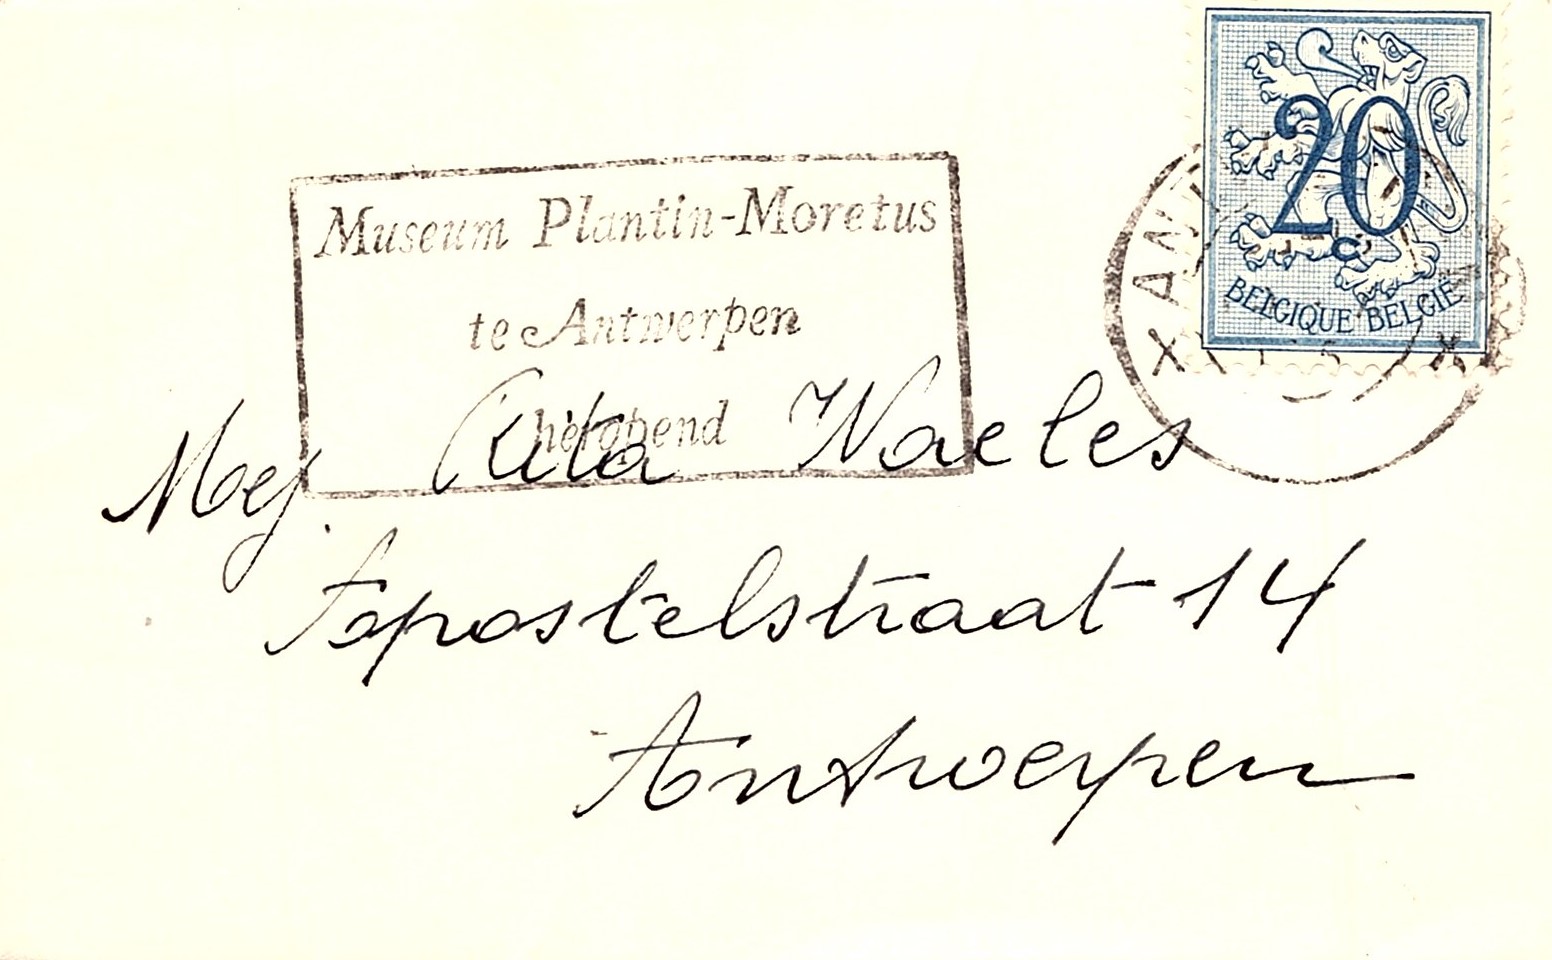 20
c
BELGIQUE BELGIË
Museum Plantin-Moretus
te Antwerpen
heropend
Mej Rita Waeles
Apostelstraat 14
Antwerpen